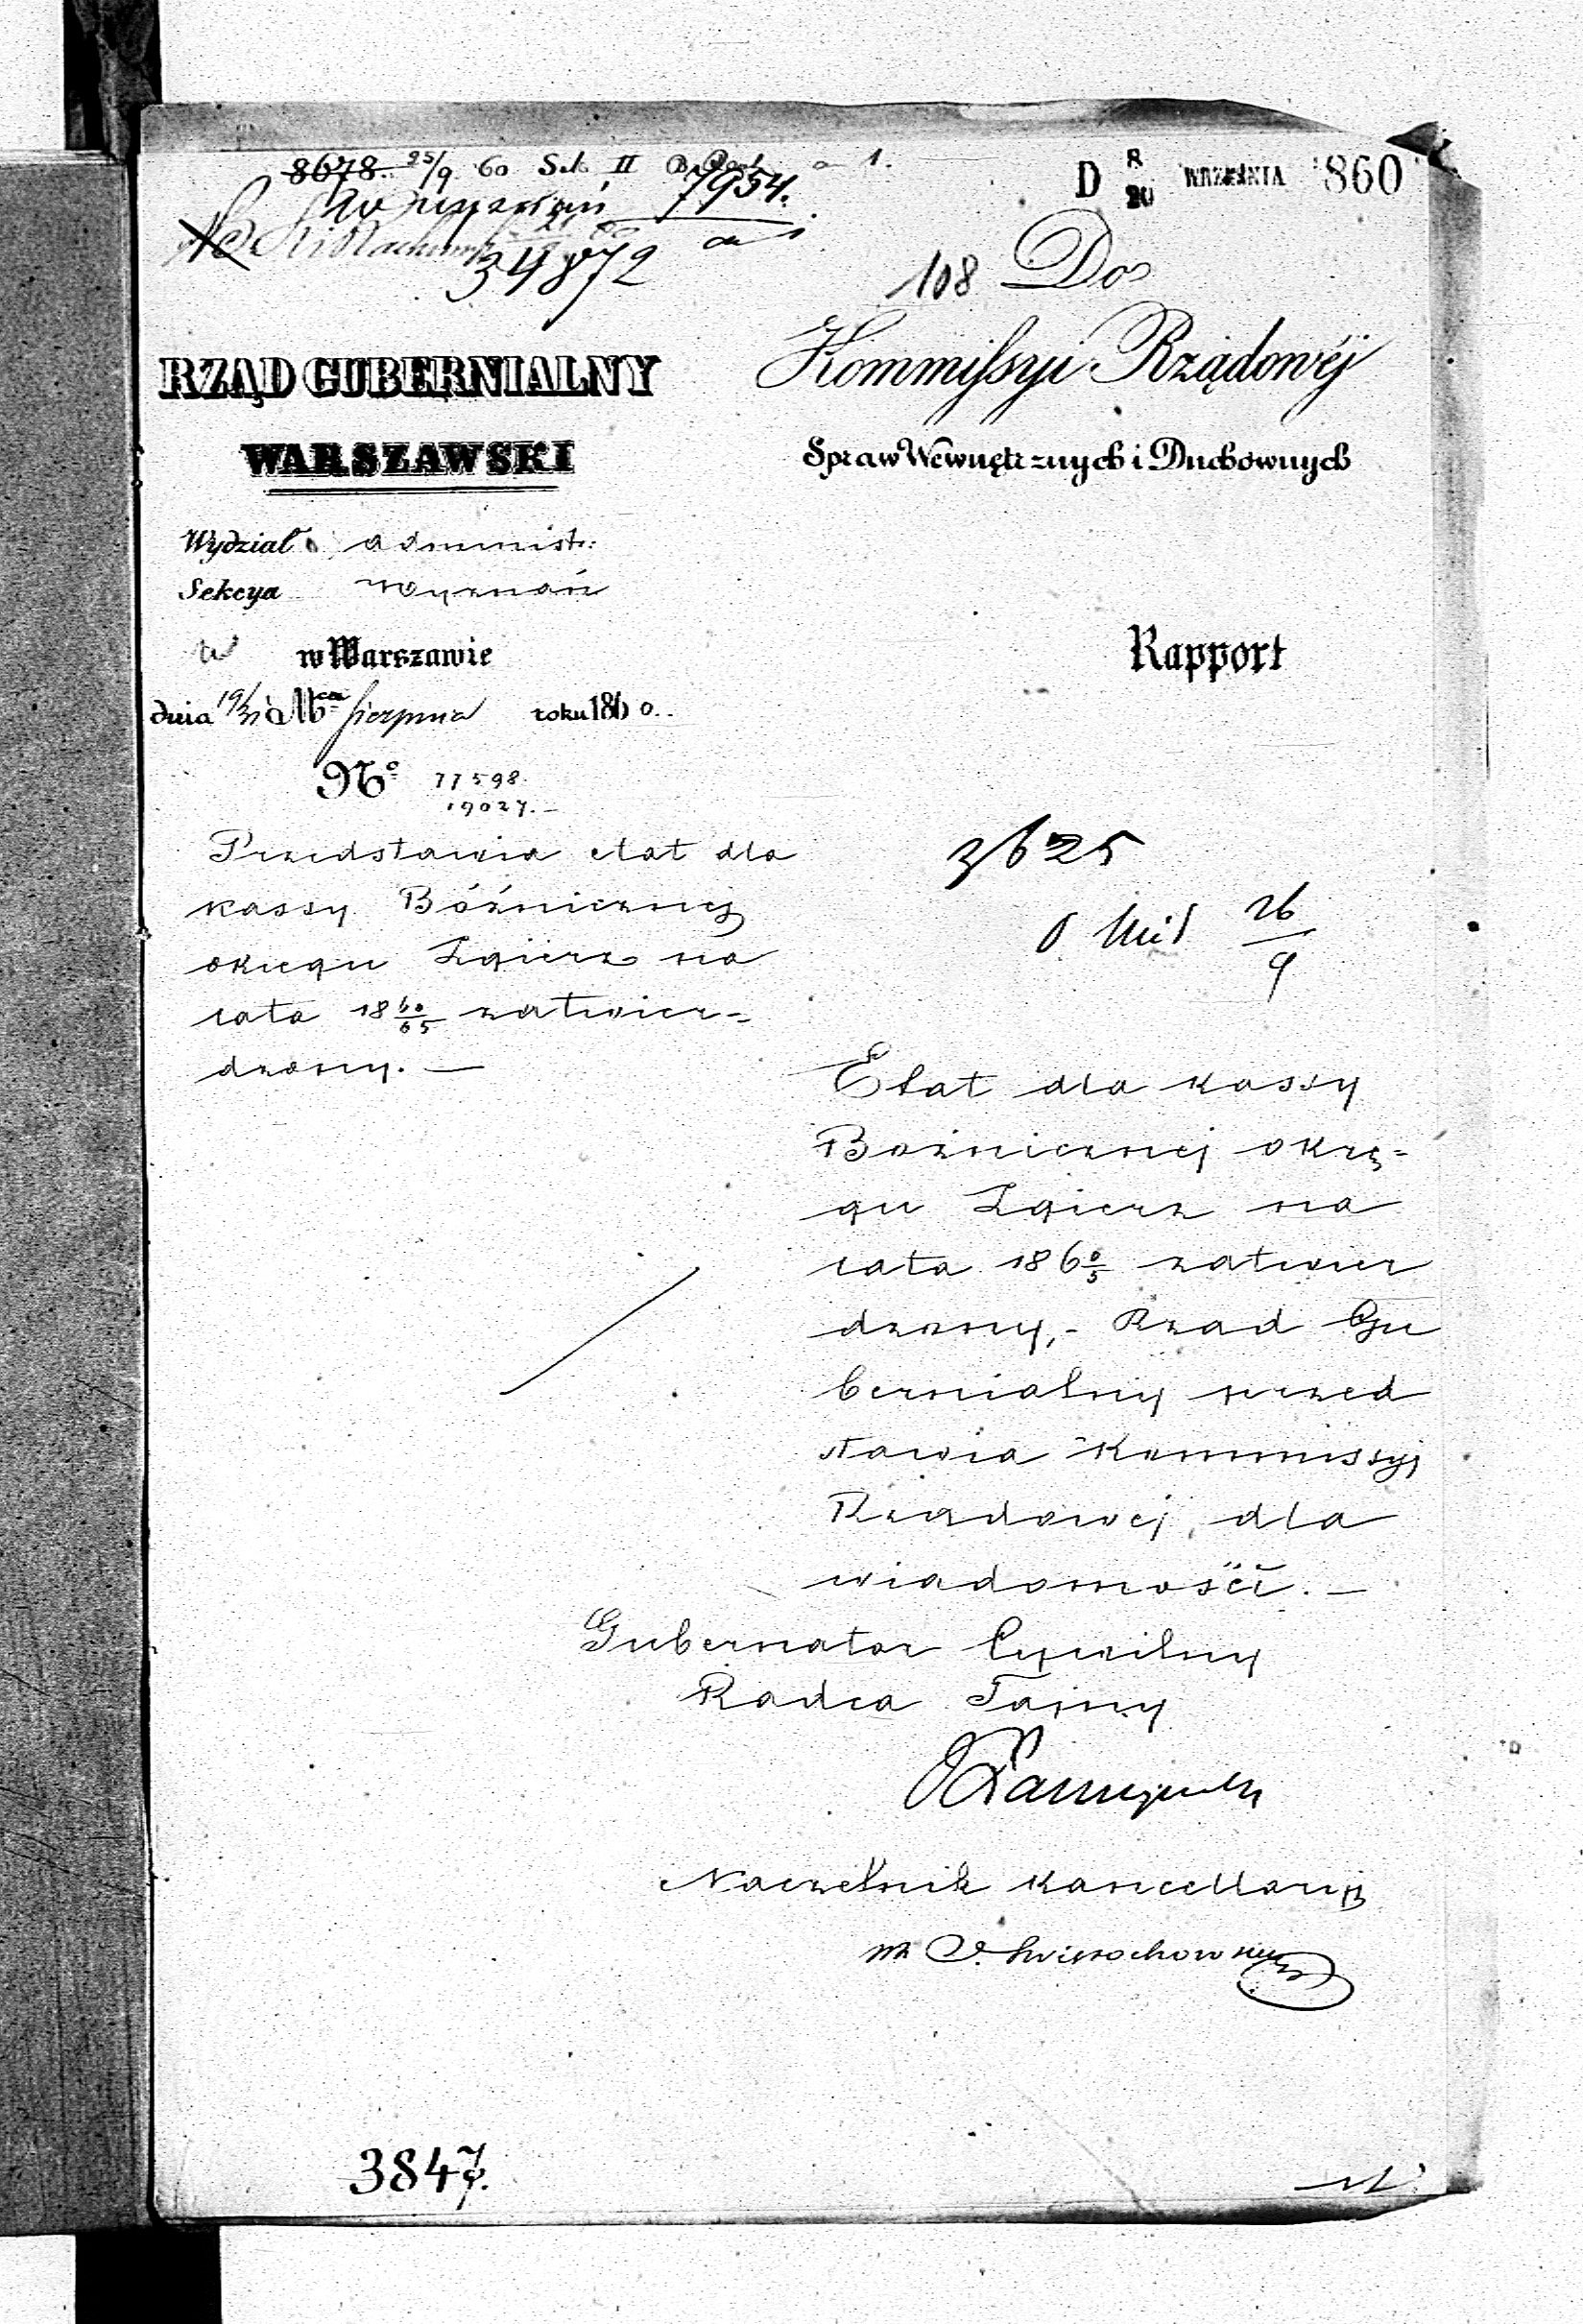 8678. 25/9 60 Sek II
7954.
34872
D 8/20 WRZEŚNIA 1860
108 Do
Kommissyi Rządowéj
Spraw Wewnętrznych i Duchownych
RZĄD GUBERNIALNY
WARSZAWSKI
Wydział Administ:
Sekcya Wyznań
w Warszawie
dnia 19/31 Mca Sierpnia roku 1860.
Rapport
No 77598.
19027.—
Przedstawia etat dla
kassy Bóżnicznej
okręgu Zgierz na
lata 18 60/65 zatwier-
dzony.—
3625
26/9
Etat dla kassy
Bożnicznej okrę-
gu Zgierz na
lata 186 0/5 zatwier
dzony,- Rząd Gu
bernialny przed
stawia Kommissyi
Rządowej dla
wiadomości.—
Gubernator Cywilny
Radca Tajny
Naczelnik Kancellaryi
3847.